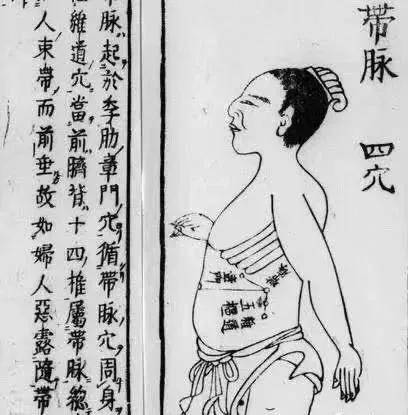 帶脉 四穴
章門
五樞
維道
脉起於季肋章門穴循帶脉穴周身
維道穴當前臍背十四椎屬帶脉總
人束帶而前垂故如婦人惡露隨帶